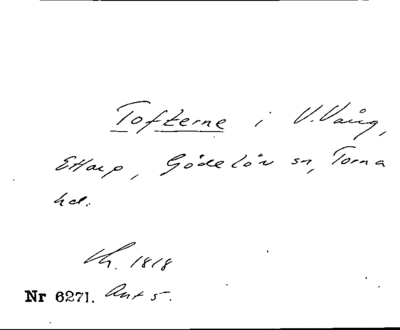 Tofterne i V. Vång,
Ettarp, Gödelöv sn, Torna
hd.
Lh. 1818
Nr 6271. Ant 5.